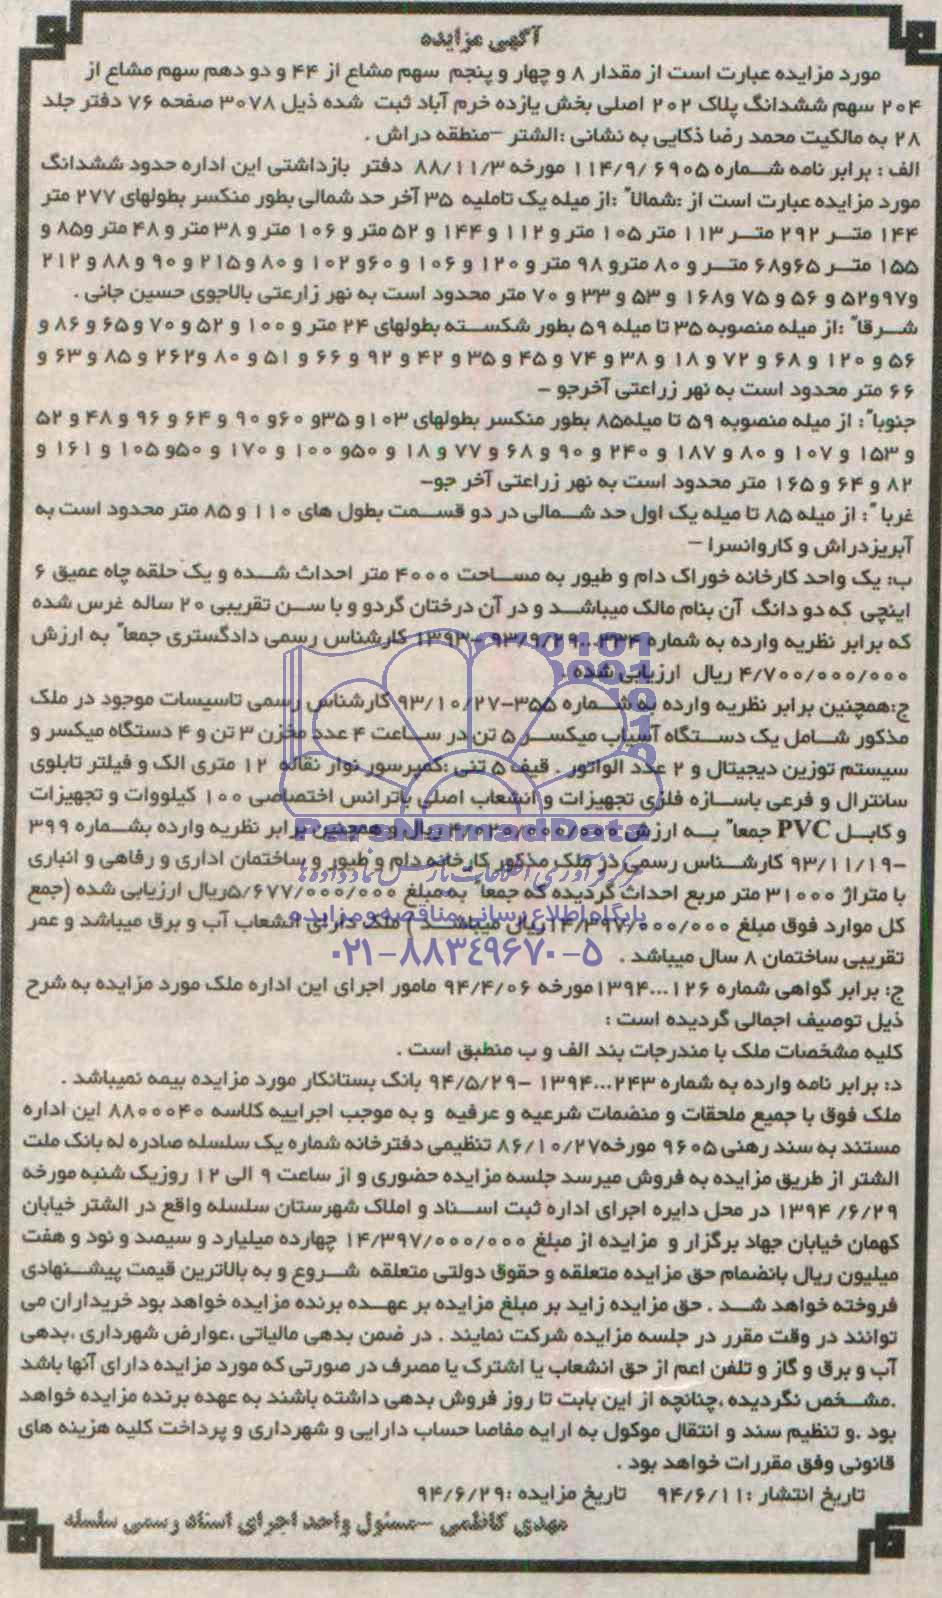 آگهی مزایده
مورد مزایده عبارت است از مقدار ۸ و چهار و پنجم سهم مشاع از ۴۴ و دو دهم سهم مشاع از
۲۰۴ سهم ششدانگ پلاک ۲۰۲ اصلی بخش یازده خرم آباد ثبت شده ذیل ۳۰۷۸ صفحه ۷۶ دفتر جلد
۲۸ به مالکیت محمد رضا ذکایی به نشانی :الشتر –منطقه دراش .
الف : برابر نامه شماره ۶۹۰۵ /۱۱۴/۹ مورخه ۸۸/۱۱/۳ دفتر بازداشتی این اداره حدود ششدانگ
مورد مزایده عبارت است از :شمالاً :از میله یک تاملیه ۳۵ آخر حد شمالی بطور منکسر بطولهای ۲۷۷ متر
۱۴۴ متر ۲۹۲ متر ۱۱۳ متر ۱۰۵ متر و ۱۱۲ و ۱۴۴ و ۵۲ متر و ۱۰۶ متر و ۳۸ متر و ۴۸ متر و۸۵ و
۱۵۵ متر ۶۵و۶۸ متر و ۸۰ مترو ۹۸ متر و ۱۲۰ و ۱۰۶ و ۶۰و ۱۰۲ و ۸۰ و۲۱۵ و ۹۰ و ۸۸ و ۲۱۲
و۹۷و۵۲ و ۵۶ و ۷۵ و۱۶۸ و ۵۳ و ۳۳ و ۷۰ متر محدود است به نهر زارعتی بالاجوی حسین جانی .
شرقاً :از میله منصوبه ۳۵ تا میله ۵۹ بطور شکسته بطولهای ۲۴ متر و ۱۰۰ و ۵۲ و ۷۰ و۶۵ و ۸۶ و
۵۶ و ۱۲۰ و ۶۸ و ۷۲ و ۱۸ و ۳۸ و ۷۴ و ۴۵ و ۳۵ و ۴۲ و ۹۲ و ۶۶ و ۵۱ و ۸۰ و۲۶۲ و ۸۵ و ۶۳ و
۶۶ متر محدود است به نهر زراعتی آخرجو –
جنوباً : از میله منصوبه ۵۹ تا میله۸۵ بطور منکسر بطولهای ۱۰۳و ۳۵و ۶۰و ۹۰ و ۶۴ و ۹۶ و ۴۸ و ۵۲
و ۱۵۳ و ۱۰۷ و ۸۰ و ۱۸۷ و ۲۴۰ و ۹۰ و ۶۸ و ۷۷ و ۱۸ و ۵۰و ۱۰۰ و ۱۷۰ و ۵۰و ۱۰۵ و ۱۶۱ و
۸۲ و ۶۴ و ۱۶۵ متر محدود است به نهر زراعتی آخر جو–
غرباً : از میله ۸۵ تا میله یک اول حد شمالی در دو قسمت بطول های ۱۱۰ و ۸۵ متر محدود است به
آبریزدراش و کاروانسرا –
ب: یک واحد کارخانه خوراک دام و طیور به مساحت ۴۰۰۰ متر احداث شده و یک حلقه چاه عمیق ۶
اینچی که دو دانگ آن بنام مالک میباشد و در آن درختان گردو و با سن تقریبی ۲۰ ساله غرس شده
که برابر نظریه وارده به شماره ۲۳۴...۹۳/۹/۲۹ –۱۳۹۳ کارشناس رسمی دادگستری جمعاً به ارزش
۴/۷۰۰/۰۰۰/۰۰۰ ریال ارزیابی شده .
ج:همچنین برابر نظریه وارده به شماره ۳۵۵–۹۳/۱۰/۲۷ کارشناس رسمی تاسیسات موجود در ملک
مذکور شامل یک دستگاه آسیاب میکسر ۵ تن در ساعت ۴ عدد مخزن ۳ تن و ۴ دستگاه میکسر و
سیستم توزین دیجیتال و ۲ عدد الواتور . قیف ۵ تنی :کمپرسور نوار نقاله ۱۲ متری الک و فیلتر تابلوی
سانترال و فرعی باسازه فلزی تجهیزات و انشعاب اصلی باترانس اختصاصی ۱۰۰ کیلووات و تجهیزات
و کابل PVC جمعاً به ارزش ۴/۰۲۰/۰۰۰/۰۰۰ ریال و همچنین برابر نظریه وارده بشماره ۳۹۹
–۹۳/۱۱/۱۹ کارشناس رسمی در ملک مذکور کارخانه دام و طیور و ساختمان اداری و رفاهی و انباری
با متراژ ۳۱۰۰۰ متر مربع احداث گردیده که جمعاً به مبلغ ۵/۶۷۷/۰۰۰/۰۰۰ریال ارزیابی شده (جمع
کل موارد فوق مبلغ ۱۴/۳۹۷/۰۰۰/۰۰۰ریال میباشد ) ملک دارای انشعاب آب و برق میباشد و عمر
تقریبی ساختمان ۸ سال میباشد .
ج: برابر گواهی شماره ۱۲۶...۱۳۹۴مورخه ۹۴/۴/۰۶ مامور اجرای این اداره ملک مورد مزایده به شرح
ذیل توصیف اجمالی گردیده است :
کلیه مشخصات ملک با مندرجات بند الف و ب منطبق است .
د: برابر نامه وارده به شماره ۲۴۳...۱۳۹۴ –۹۴/۵/۲۹ بانک بستانکار مورد مزایده بیمه نمیباشد .
ملک فوق با جمیع ملحقات و منضمات شرعیه و عرفیه و به موجب اجراییه کلاسه ۸۸۰۰۰۴۰ این اداره
مستند به سند رهنی ۹۶۰۵ مورخه۸۶/۱۰/۲۷ تنظیمی دفترخانه شماره یک سلسله صادره له بانک ملت
الشتر از طریق مزایده به فروش میرسد جلسه مزایده حضوری و از ساعت ۹ الی ۱۲ روزیک شنبه مورخه
۱۳۹۴ /۶/۲۹ در محل دایره اجرای اداره ثبت اسناد و املاک شهرستان سلسله واقع در الشتر خیابان
کهمان خیابان جهاد برگزار و مزایده از مبلغ ۱۴/۳۹۷/۰۰۰/۰۰۰ چهارده میلیارد و سیصد و نود و هفت
میلیون ریال بانضمام حق مزایده متعلقه و حقوق دولتی متعلقه شروع و به بالاترین قیمت پیشنهادی
فروخته خواهد شد . حق مزایده زاید بر مبلغ مزایده بر عهده برنده مزایده خواهد بود خریداران می
توانند در وقت مقرر در جلسه مزایده شرکت نمایند . در ضمن بدهی مالیاتی ،عوارض شهرداری ،بدهی
آب و برق و گاز و تلفن اعم از حق انشعاب یا اشترک یا مصرف در صورتی که مورد مزایده دارای آنها باشد
.مشخص نگردیده ،چنانچه از این بابت تا روز فروش بدهی داشته باشند به عهده برنده مزایده خواهد
بود .و تنظیم سند و انتقال موکول به ارایه مفاصا حساب دارایی و شهرداری و پرداخت کلیه هزینه های
قانونی وفق مقررات خواهد بود .
تاریخ انتشار :۹۴/۶/۱۱ تاریخ مزایده :۹۴/۶/۲۹
مهدی کاظمی –مسئول واحد اجرای اسناد رسمی سلسله
ParsNamadData
مرکز فرآوری اطلاعات پارس نماد داده ها
پایگاه اطلاع رسانی مناقصه و مزایده
۰۲۱–۸۸۳۴۹۶۷۰–۵